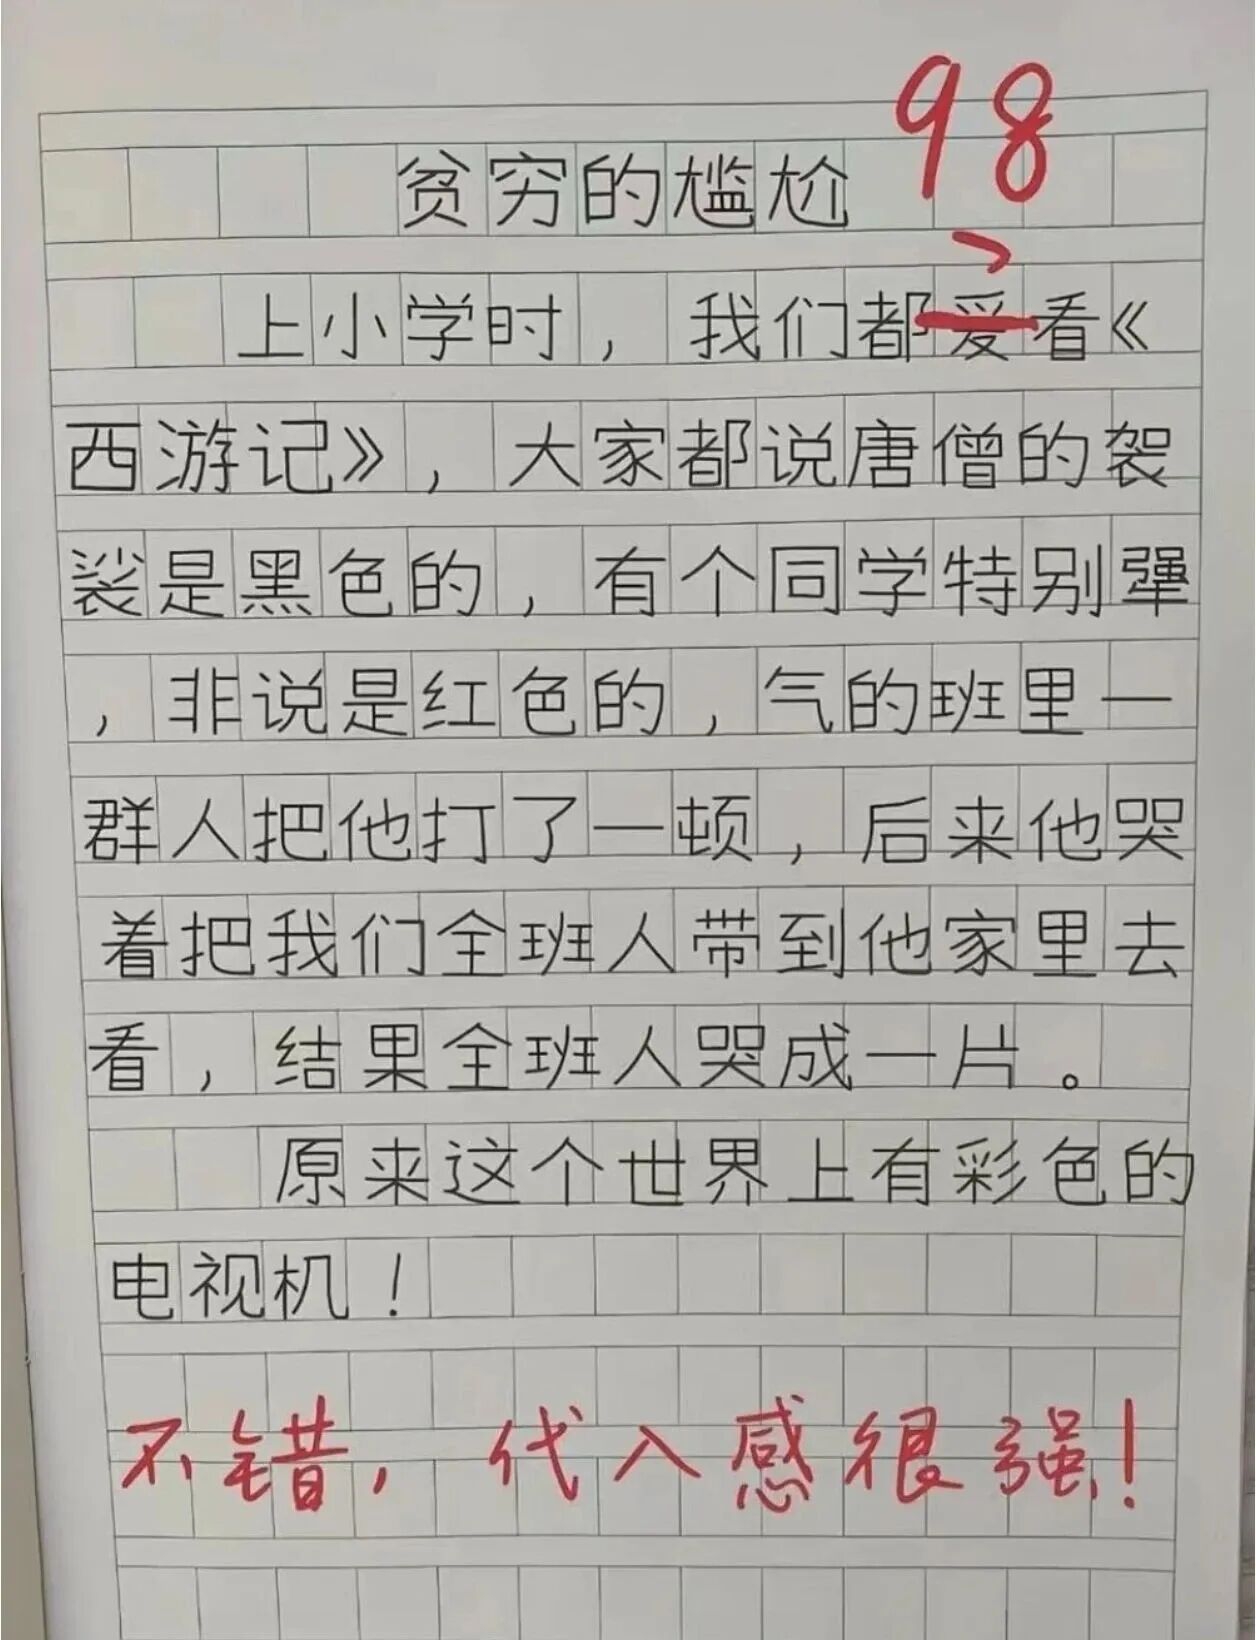 98
贫穷的尴尬
上小学时，我们都爱看《
西游记》，大家都说唐僧的袈
裟是黑色的，有个同学特别犟
，非说是红色的，气的班里一
群人把他打了一顿，后来他哭
着把我们全班人带到他家里去
看，结果全班人哭成一片。
原来这个世界上有彩色的
电视机！
不错，代入感很强！